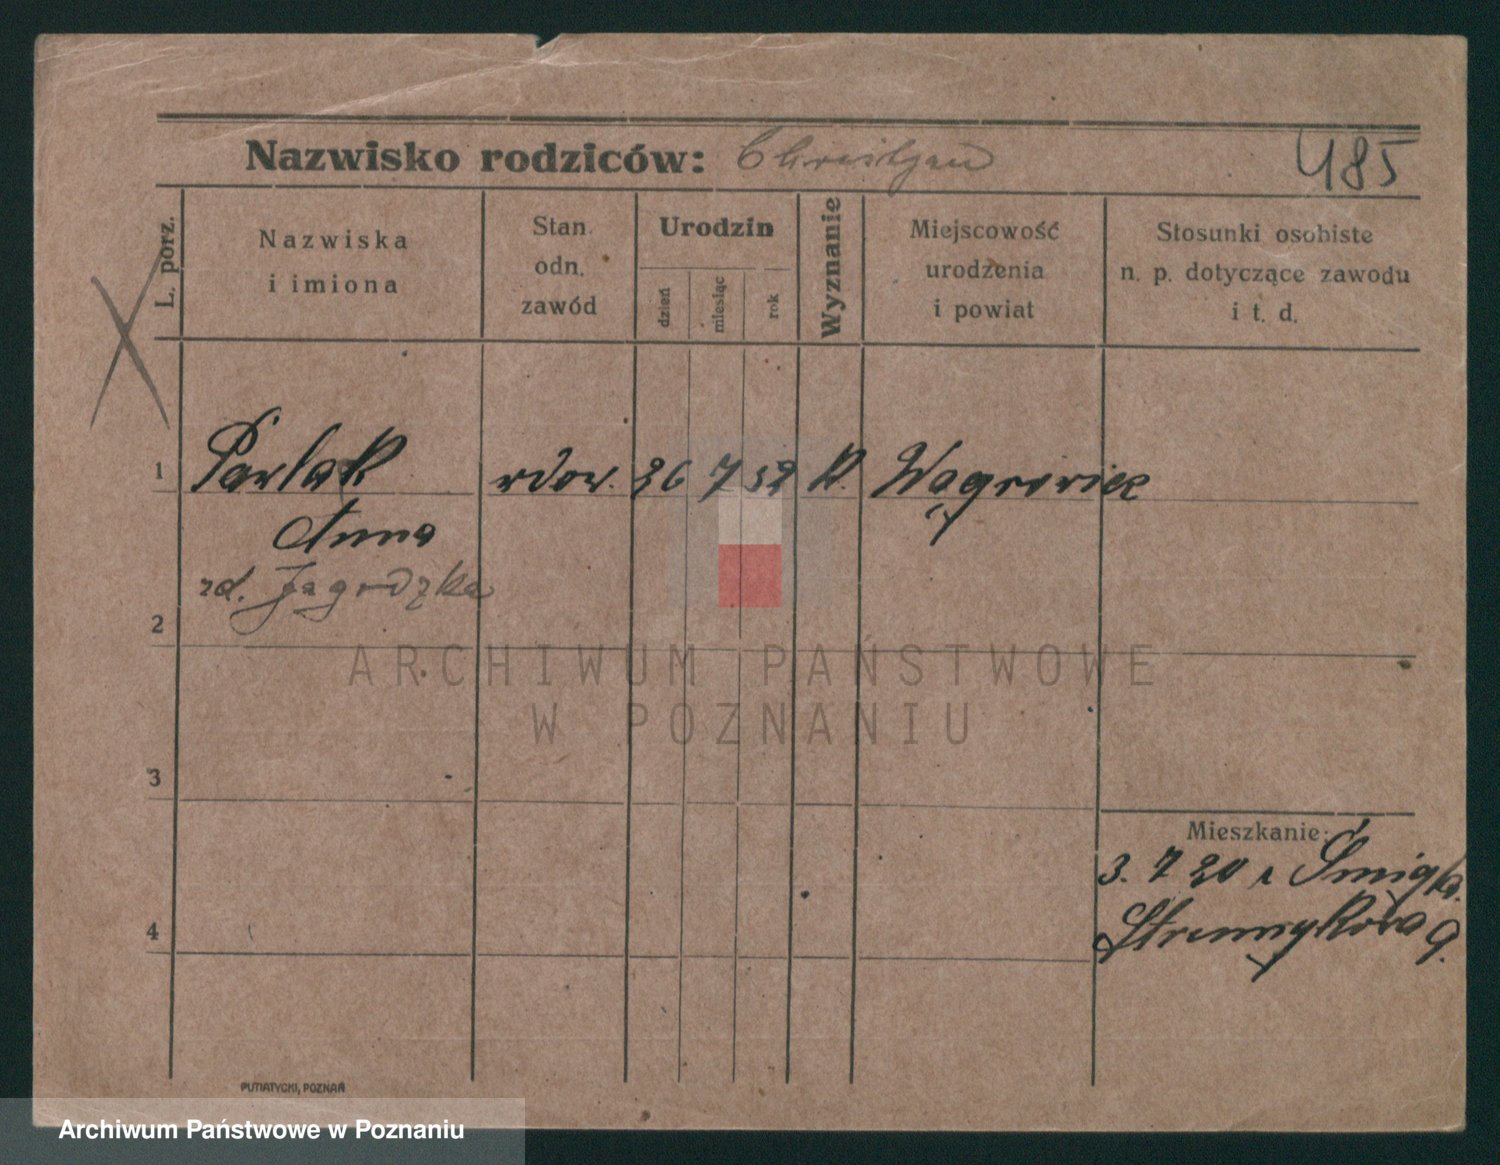 Nazwisko rodziców: 485
L. porz.
Nazwiska
i imiona
Stan.
odn.
zawód
Urodzin
dzień
miesiąc
rok
Wyznanie
Miejscowość
urodzenia
i powiat
Stosunki osobiste
n. p. dotyczące zawodu
i t. d.
1 Pawlak wdow. 26 7 52 k. Wągrowiec
Anna
2
3
4
Mieszkanie:
3. 7 20
9.
ARCHIWUM PAŃSTWOWE
W POZNANIU
PUTIATYCKI, POZNAŃ
Archiwum Państwowe w Poznaniu